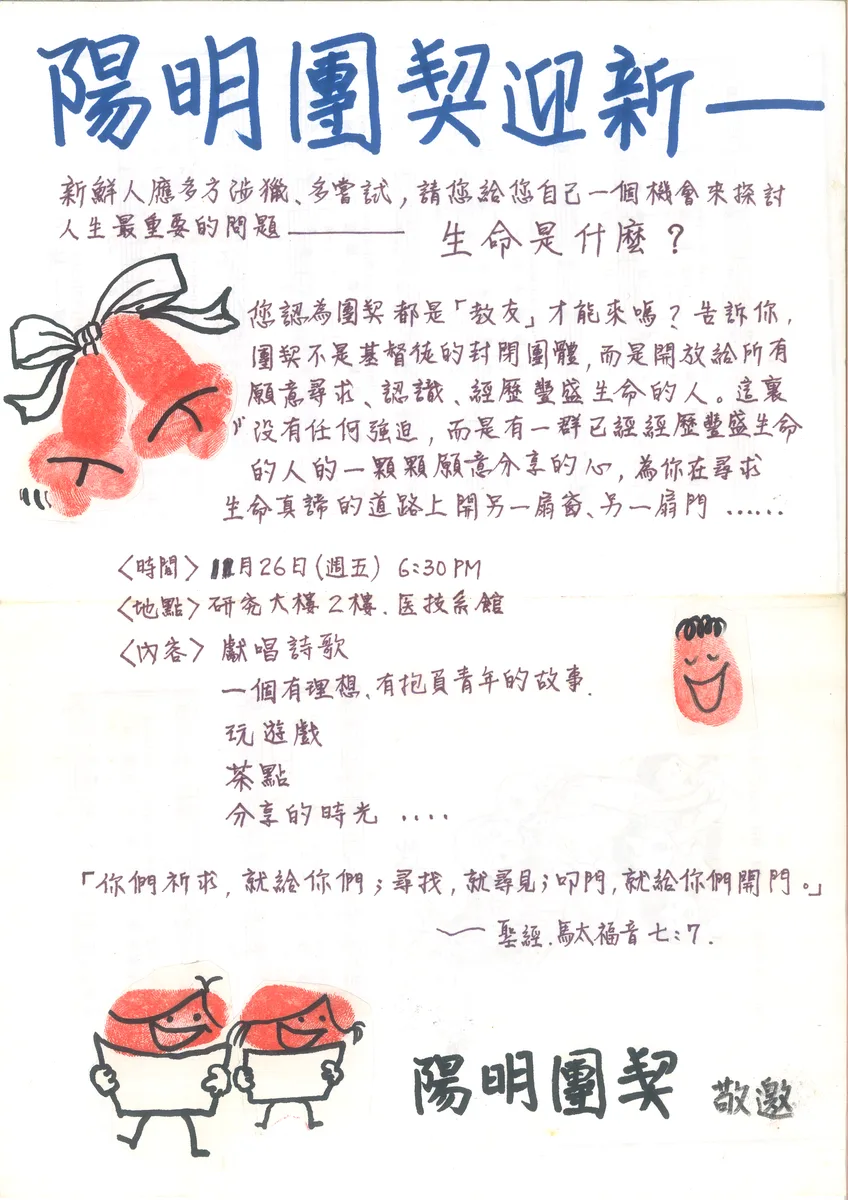 陽明團契迎新——
新鮮人應多方涉獵、多嘗試，請您給您自己一個機會來探討
人生最重要的問題———— 生命是什麼？
您認為團契都是「教友」才能來嗎？告訴你，
團契不是基督徒的封閉團體，而是開放給所有
願意尋求、認識、經歷豐盛生命的人。這裏
沒有任何強迫，而是有一群已經經歷豐盛生命
的人的一顆顆願意分享的心，為你在尋求
生命真諦的道路上開另一扇窗、另一扇門……
〈時間〉 月26日（週五） 6:30 PM
〈地點〉研究大樓2樓．医技系館
〈內容〉 獻唱詩歌
一個有理想、有抱負青年的故事．
玩遊戲
茶點
分享的時光 ‥‥
「你們祈求，就給你們；尋找，就尋見；叩門，就給你們開門。」
——聖經．馬太福音七:7．
陽明團契 敬邀